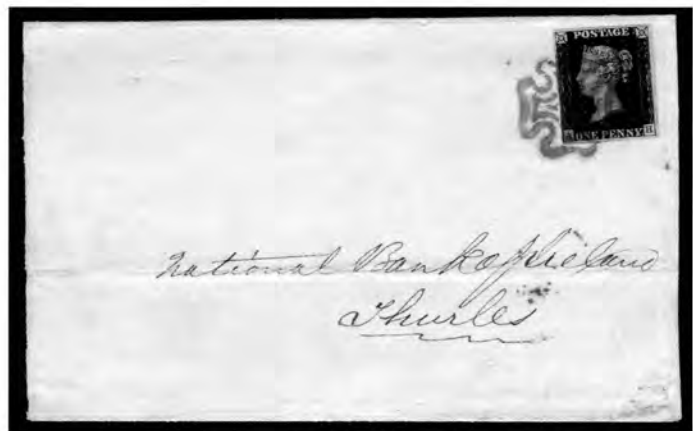 POSTAGE
ONE PENNY
National Bank of Ireland
Thurles